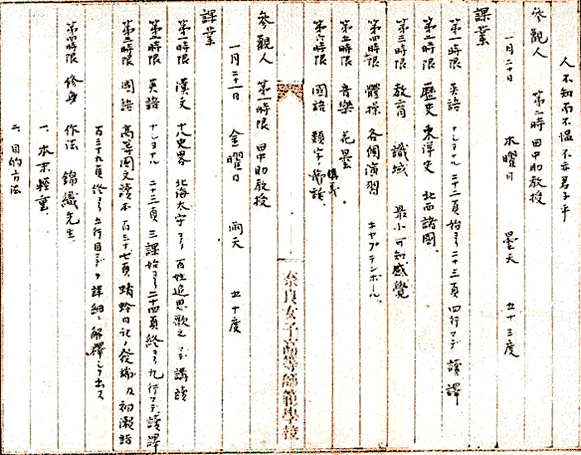 人不知而不慍不亦君子乎
参觀人　第二時　田中助教授
一月二十日　木曜日　曇天　五十三度
課業
第一時限　英語　ナショナル　二十二頁始ヨリ二十三頁四行マデ　讀譯
第二時限　歷史　東洋史　北西諸國、
第三時限　教育　識域　最小可知感覺
第四時限　體操　各個演習　キャプテンボール、
第五時限　音樂　花曇
第六時限　國語　類字ノ講義、
奈良女子高等師範學校
参觀人　第一時限　田中助教授
一月二十一日　金曜日　雨天　五十度
課業
第一時限　漢文　十八史畧　北海太守ヨリ百姓追思歌之マデ　講讀
第二時限　英語　ナショナル　二十三頁三課始ヨリ二十四頁終ヨリ九行マデ讀譯
第三時限　國語　高等國文讀本百三十七頁蜻蛉日記ノ發端及初瀬詣
百三十九頁終ヨリ五行目マデヲ詳細ニ解釋シテ出ス
第四時限　修身　作法　錦織先生
一、本末軽重、
二、目的方法